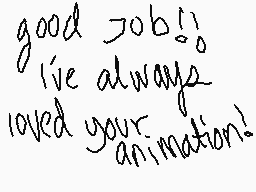 good job!!
i've always
loved your
animation!